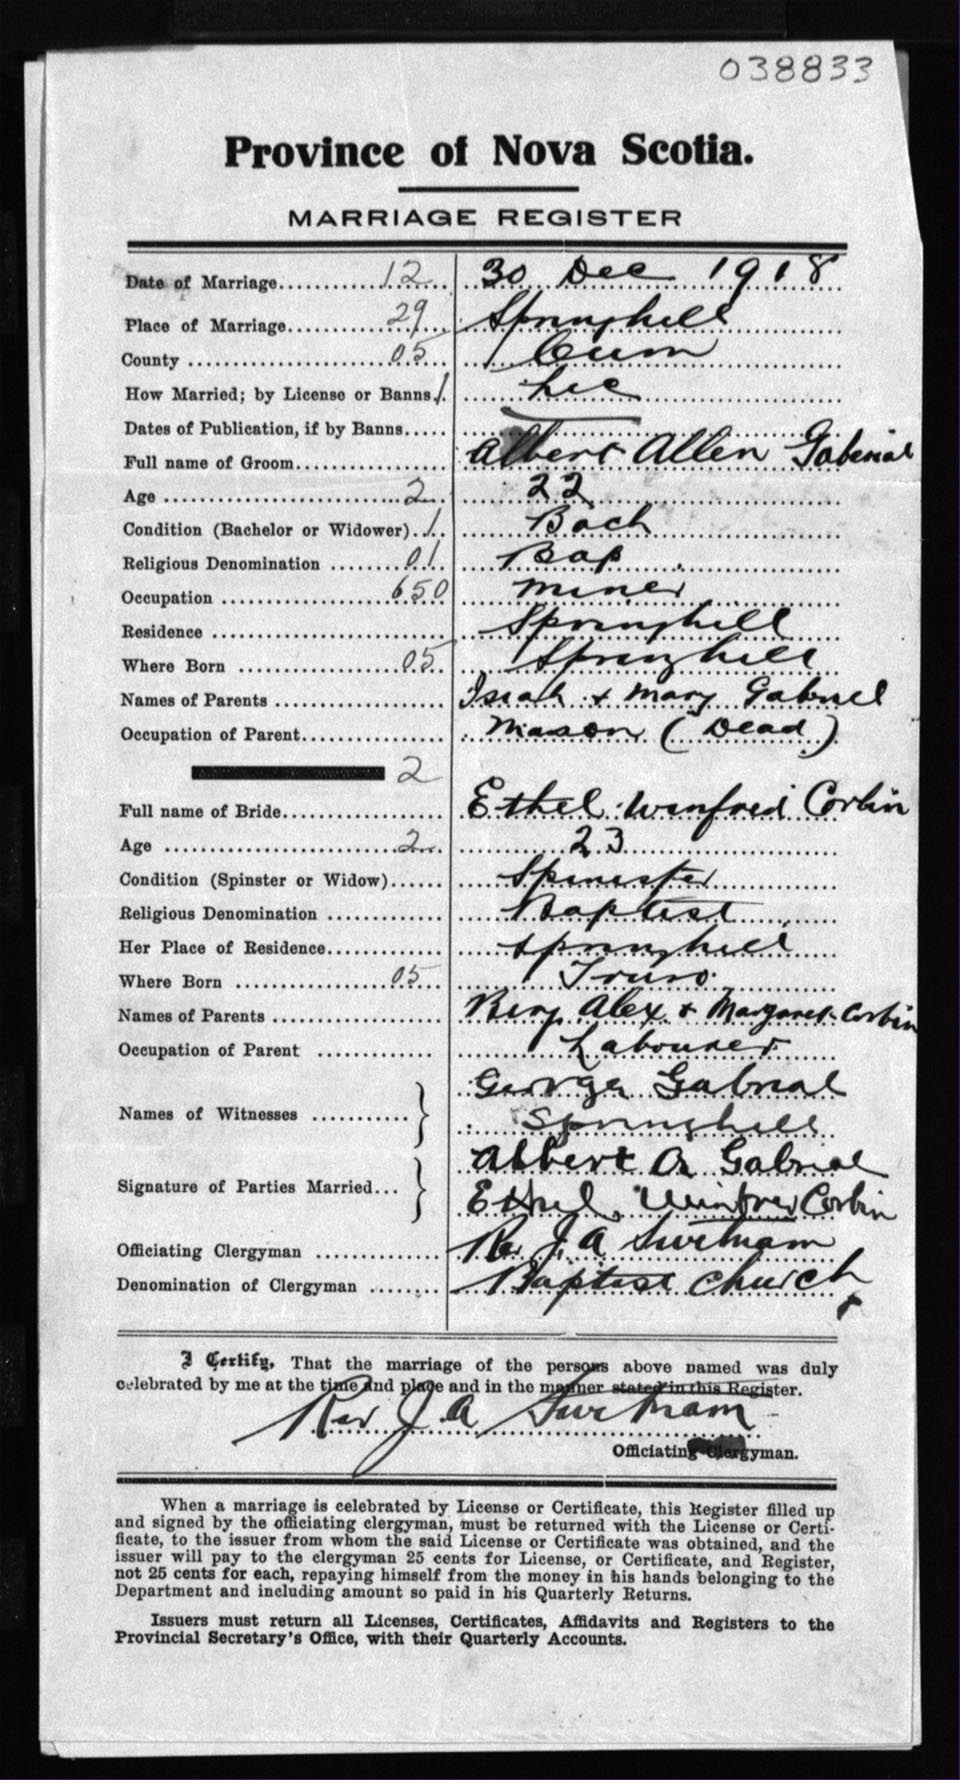 038833
Province of Nova Scotia.
MARRIAGE REGISTER
Date of Marriage 12 30 Dec 1918
Place of Marriage 29 Springhill
County 05 Cum
How Married; by License or Banns 1 Lic
Dates of Publication, if by Banns
Full name of Groom Albert Allen Gaberial
Age 2 22
Condition (Bachelor or Widower) 1 Bach
Religious Denomination 01 Bap
Occupation 650 Miner
Residence Springhill
Where Born 05 Springhill
Names of Parents Isiah + Mary Gabriel
Occupation of Parent Mason (Dead)
2
Full name of Bride Ethel Winfred Corbin
Age 2 23
Condition (Spinster or Widow) Spinster
Religious Denomination Baptist
Her Place of Residence Springhill
Where Born 05 Truro
Names of Parents Benj Alex + Margaret Corbin
Occupation of Parent Labourer
Names of Witnesses } George Gabrial
Springhill
Signature of Parties Married... } Albert A Gabriel
Ethel Winfred Corbin
Officiating Clergyman Rev J. A Swetnam
Denomination of Clergyman Baptist Church
I Certify, That the marriage of the persons above named was duly
celebrated by me at the time and place and in the manner stated in this Register.
Rev J. A Swetnam
Officiating Clergyman.
When a marriage is celebrated by License or Certificate, this Register filled up
and signed by the officiating clergyman, must be returned with the License or Certi-
ficate, to the issuer from whom the said License or Certificate was obtained, and the
issuer will pay to the clergyman 25 cents for License, or Certificate, and Register,
not 25 cents for each, repaying himself from the money in his hands belonging to the
Department and including amount so paid in his Quarterly Returns.
Issuers must return all Licenses, Certificates, Affidavits and Registers to the
Provincial Secretary's Office, with their Quarterly Accounts.